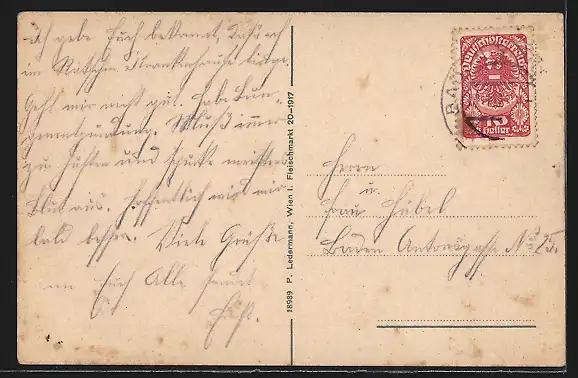 Ich gebe Euch bekannt, daß ich
im Rathschen Krankenhause liege.
Geht mir nicht gut. Habe Lun-
genentzündung. Muß immer
zu husten und spucke meistens
Blut aus. Hoffentlich wird mir
bald besser. Viele Grüße
an Euch Alle sendet
18989 P. Ledermann, Wien I. Fleischmarkt 20-1917
Deutschösterreich
10
Heller
BA
Herrn
u.
Frau Hübel
Baden Antonsgasse No 25.